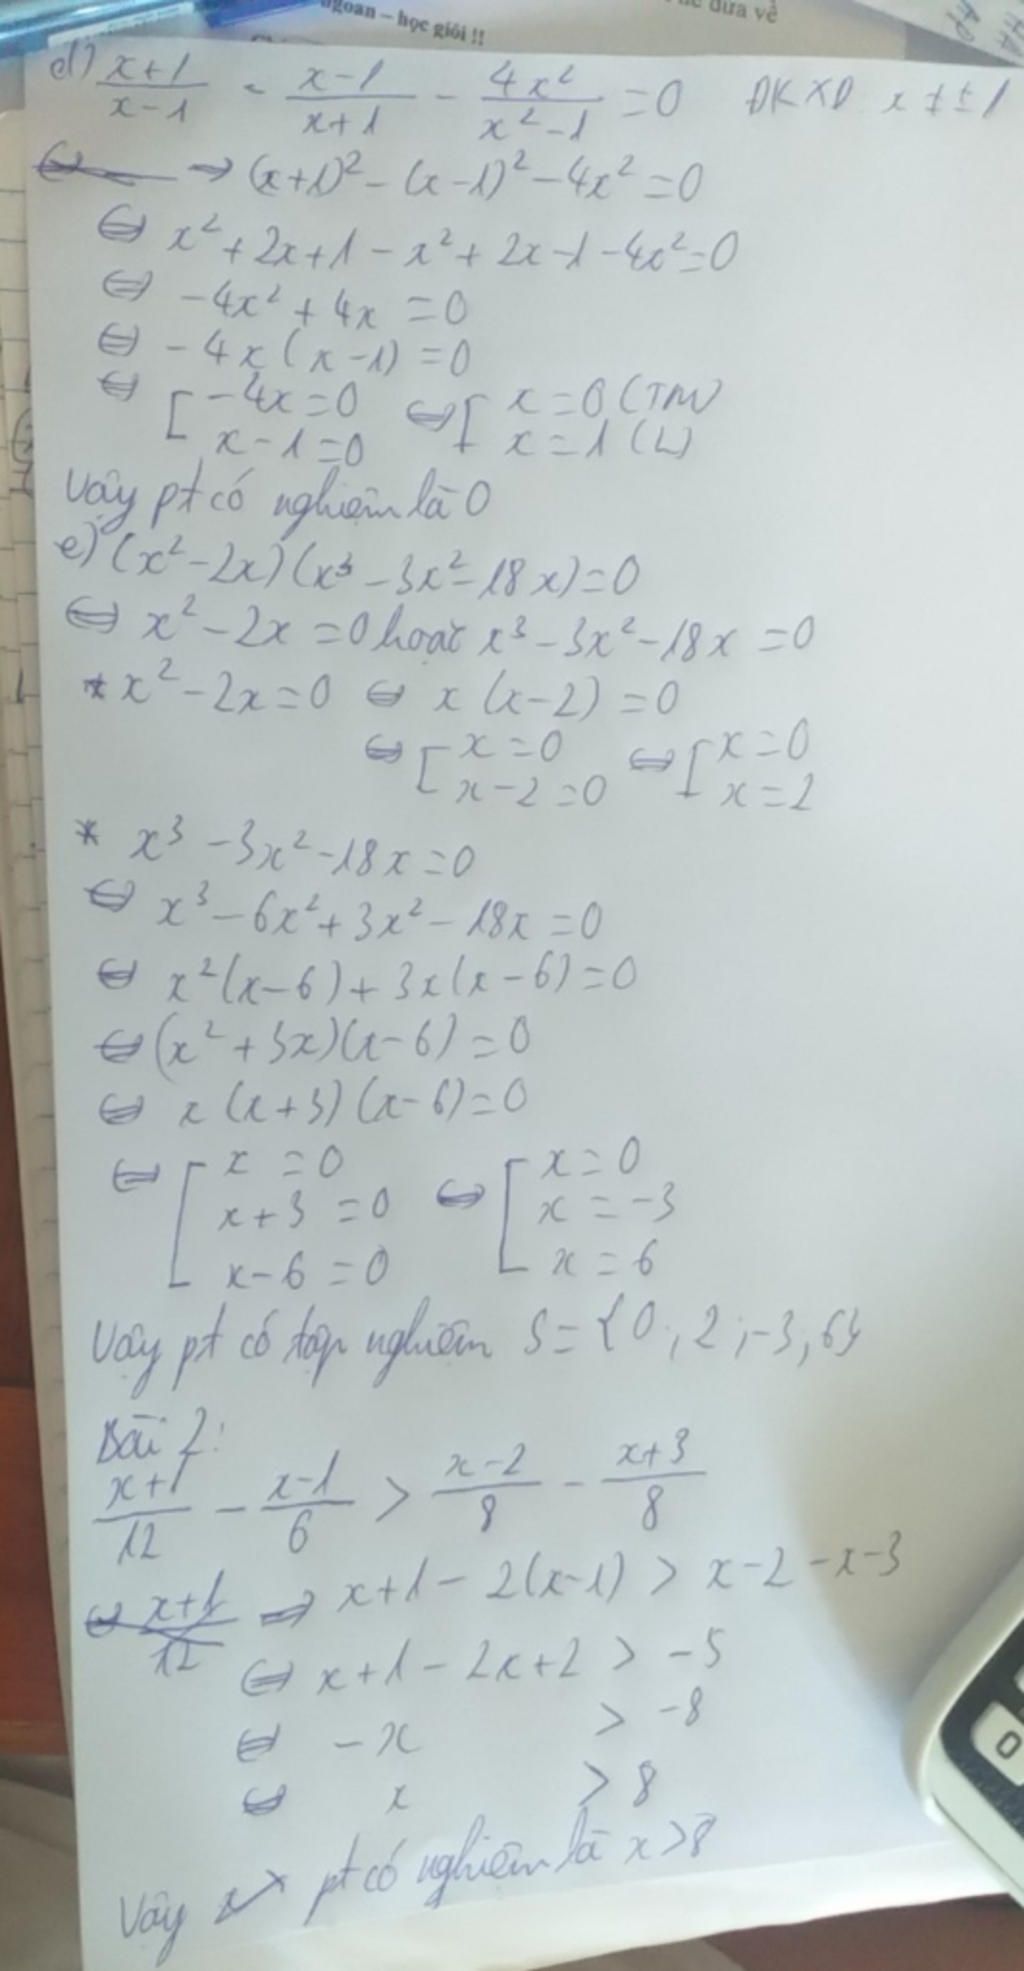 ngoan – học giỏi !!
đưa về
d) \frac{x+1}{x-1} - \frac{x-1}{x+1} - \frac{4x²}{x²-1} = 0 ĐKXĐ x ≠ ±1
⇒ (x+1)² - (x-1)² - 4x² = 0
⇔ x² + 2x + 1 - x² + 2x - 1 - 4x² = 0
⇔ -4x² + 4x = 0
⇔ -4x(x-1) = 0
⇔ [ -4x = 0 ⇔ [ x = 0 (TM)
x - 1 = 0 x = 1 (L)
Vậy pt có nghiệm là 0
e) (x² - 2x)(x³ - 3x² - 18x) = 0
⇔ x² - 2x = 0 hoặc x³ - 3x² - 18x = 0
* x² - 2x = 0 ⇔ x(x-2) = 0
⇔ [ x = 0 ⇔ [ x = 0
x - 2 = 0 x = 2
* x³ - 3x² - 18x = 0
⇔ x³ - 6x² + 3x² - 18x = 0
⇔ x²(x-6) + 3x(x-6) = 0
⇔ (x² + 3x)(x-6) = 0
⇔ x(x+3)(x-6) = 0
⇔ [ x = 0 ⇔ [ x = 0
x + 3 = 0 x = -3
x - 6 = 0 x = 6
Vậy pt có tập nghiệm S = {0; 2; -3; 6}
Bài 2:
\frac{x+1}{12} - \frac{x-1}{6} > \frac{x-2}{8} - \frac{x+3}{8}
\frac{x+1}{12} ⇒ x+1 - 2(x-1) > x-2-x-3
⇔ x+1-2x+2 > -5
⇔ -x > -8
⇔ x > 8
Vậy pt có nghiệm là x > 8
0